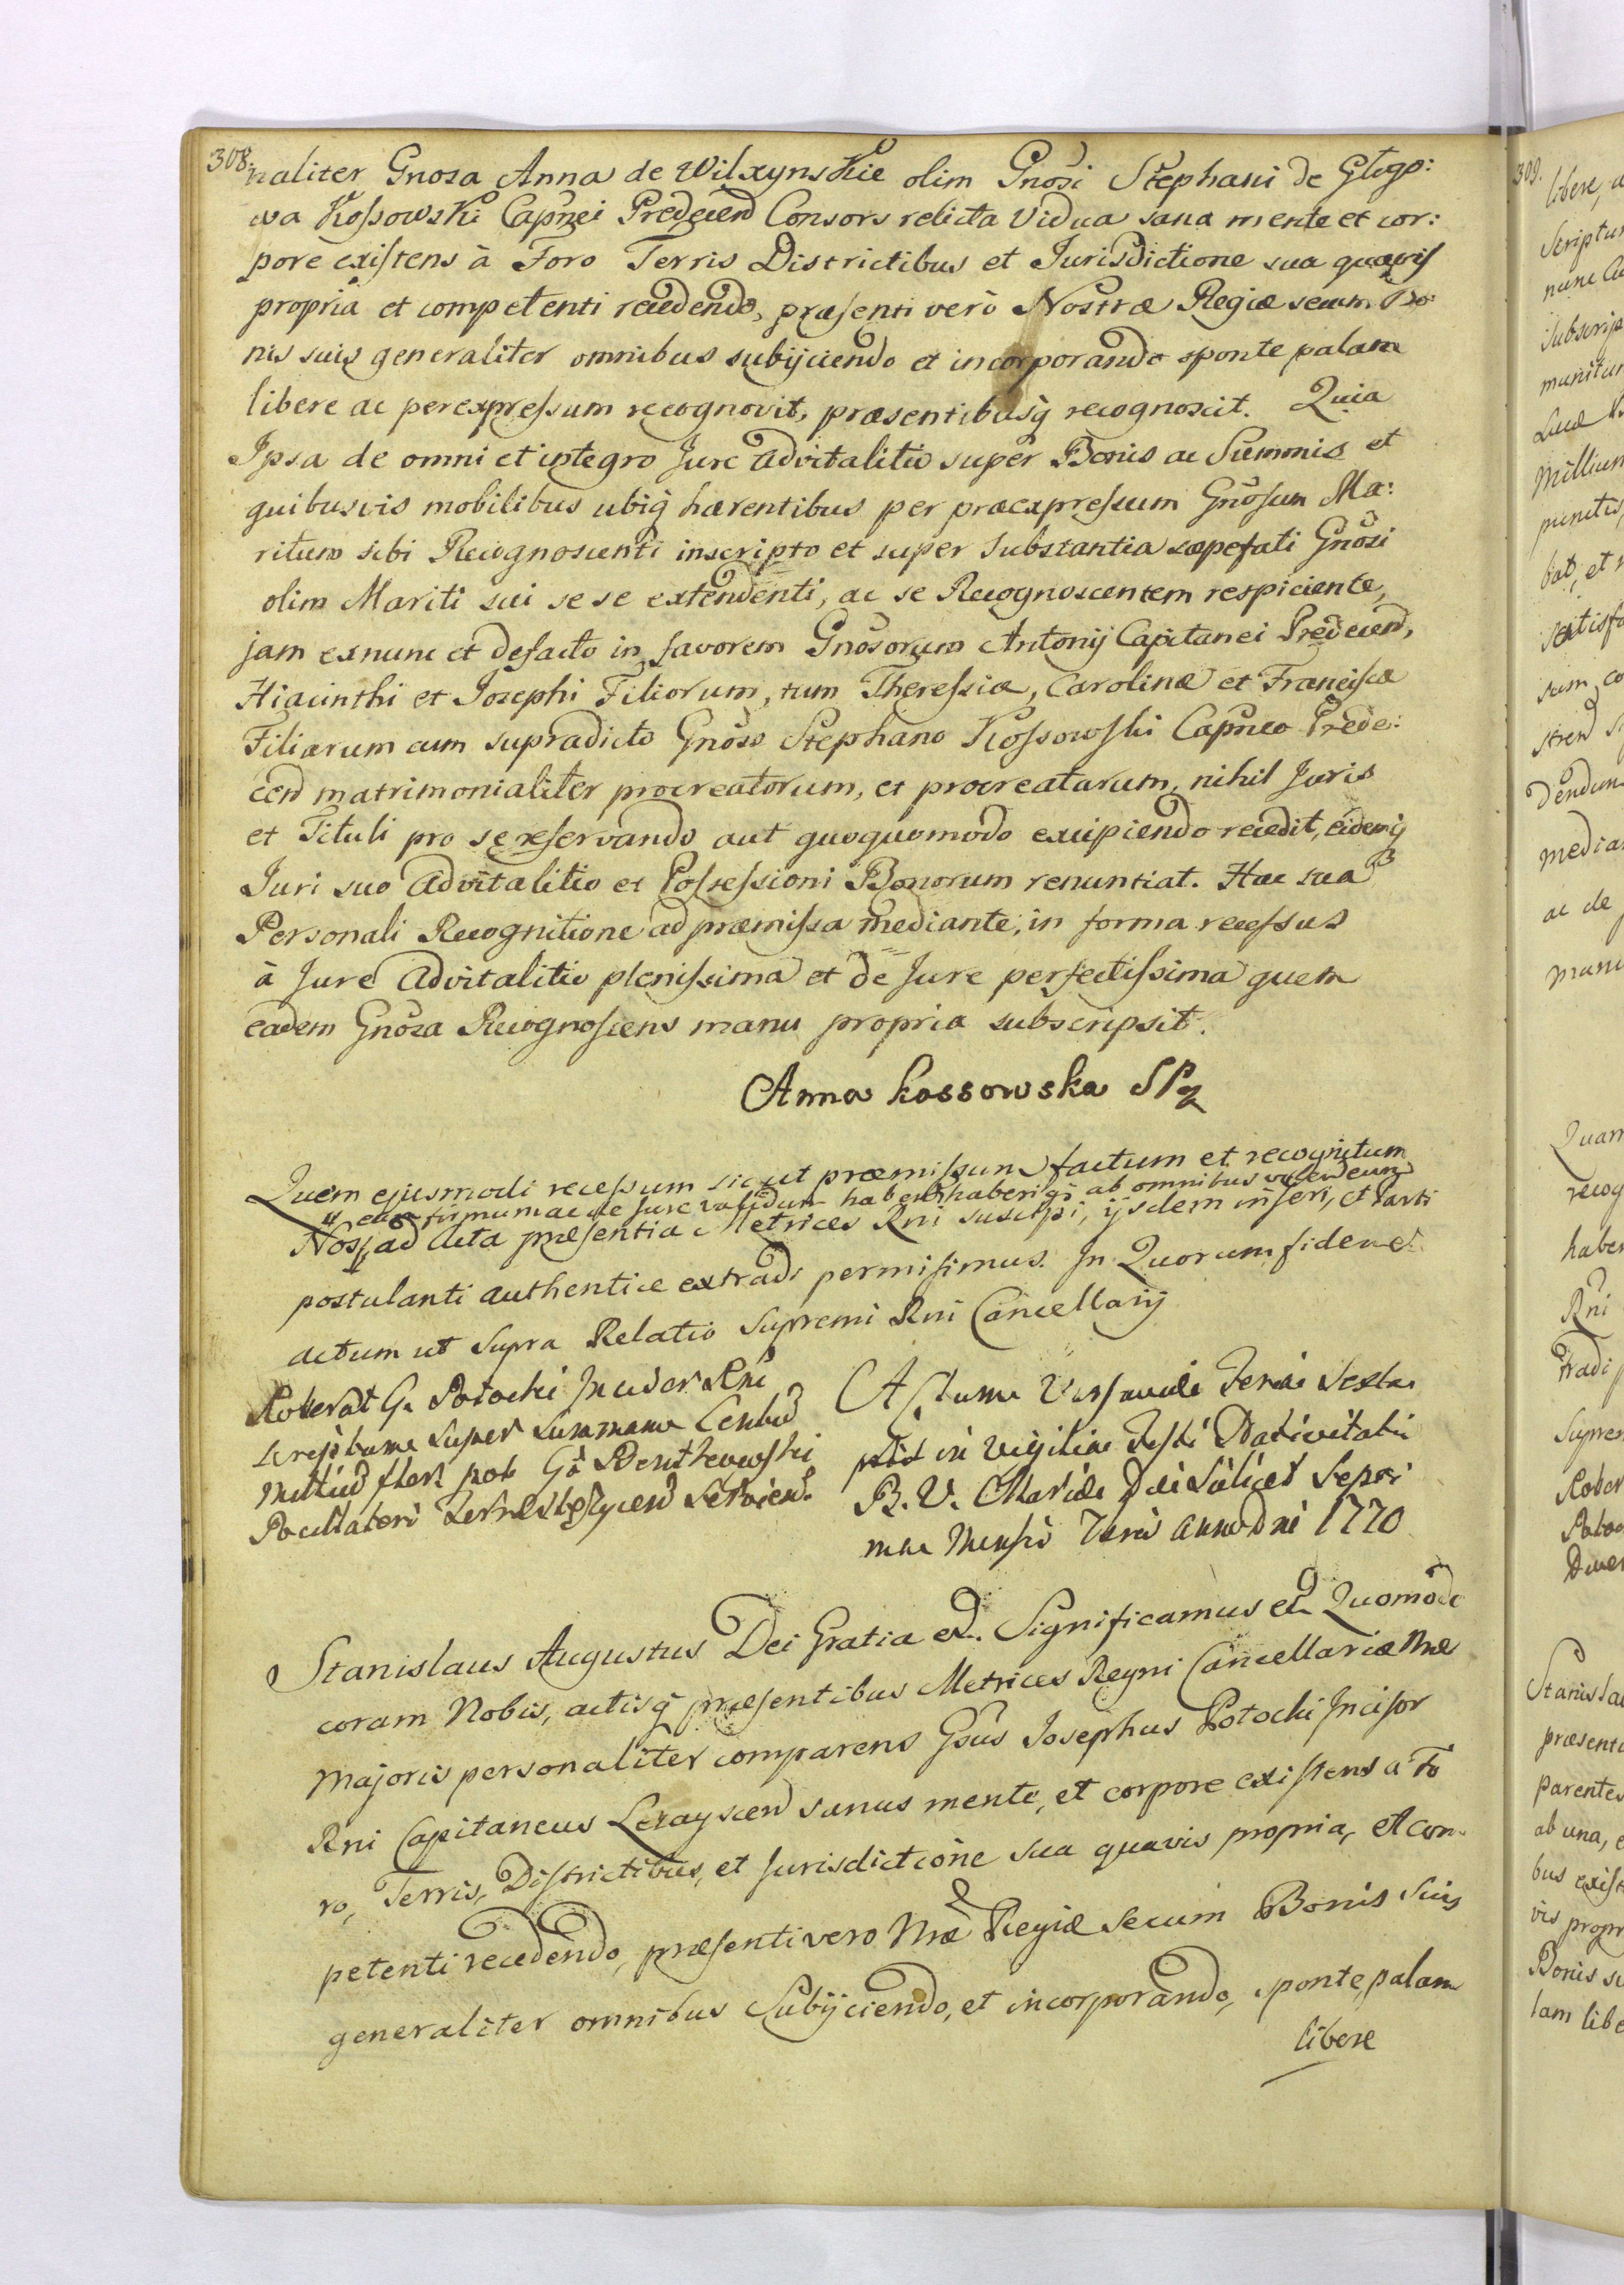 308.
naliter Gnosa Anna de Wilxynskie olim Gnosi Stephani de Glogo:
wa Kossowski Capnei Predecen Consors relicta Vidua sana mente et cor:
pore existens à Foro Terris Districtibus et Jurisdictione sua quavis
propria et competenti recedendo, præsenti verò Nostræ Regiæ secum Bo:
nis suis generaliter omnibus subijciendo et incorporando sponte palam
libere ac perexpressum recognovit, præsentibusq recognoscit. Quia
Ipsa de omni et integro Jure Advitalitio super Bonis ac Summis et
quibusvis mobilibus ubiq hærentibus per præexpressum Gnosum Ma:
ritum sibi Recognoscenti inscripto et super Substantia sæpefati Gnosi
olim Mariti sui se se extendenti, ac se Recognoscentem respiciente,
jam exnunc et defacto in favorem Gnosorum Antonij Capitanei Predecen,
Hiacinthi et Josephi Filiorum, tum Theressiæ, Carolinæ et Franciscæ
Filiarum cum supradicto Gnoso Stephano Kossowski Capneo Prede:
cen matrimonialiter procreatorum, et procreatarum, nihil Juris
et Tituli pro se reservando aut quoquomodo excipiendo recedit, eidemq
Juri suo Advitalitio et Possessioni Bonorum renuntiat. Hac sua
Personali Recognitione ad præmissa mediante, in forma recessus
à Jure Advitalitio plenissima et de Jure perfectissima quem
eadem Gnosa Recognoscens manu propria subscripsit.
Anna Kossowska
Quem ejusmodi recessum sicut præmissum factum et recognitum
firmum ac de Jure validum haberi ab omnibus volendum
Nos, ad Acta præsentia Metrices Rni suscipi, ijsdem inseri, et Parti
postulanti authentice extradi permisimus. In Quorum fidem et
actum ut Supra Relatio Supremi Rni Cancellarij
Roborat G. Potocki Incisor Rni
Scriptum super Summam Centum
Millium flor. pol. Gō
Pocillatori Terrest
Actum Varsaviæ Feria Sexta
in Vigilia Festi Nativitatis
B. V. Mariæ Die Scilicet Septi
ma Mensis Anno Dni 1770
Stanislaus Augustus Dei Gratia et. Significamus et Quomodo
coram Nobis, actisq præsentibus Metrices Regni Cancellariæ Nræ
Majoris personaliter comparens Gsus Josephus Potocki Incisor
Rni Capitaneus Lezayscen sanus mente, et corpore existens a Fo
ro, Terris, Districtibus, et Jurisdictione sua quavis propria, et com-
petenti recedendo, præsenti vero Nræ Regiæ secum Bonis Suis
generaliter omnibus Subijciendo, et incorporando, sponte, palam
libere
309.
libere,